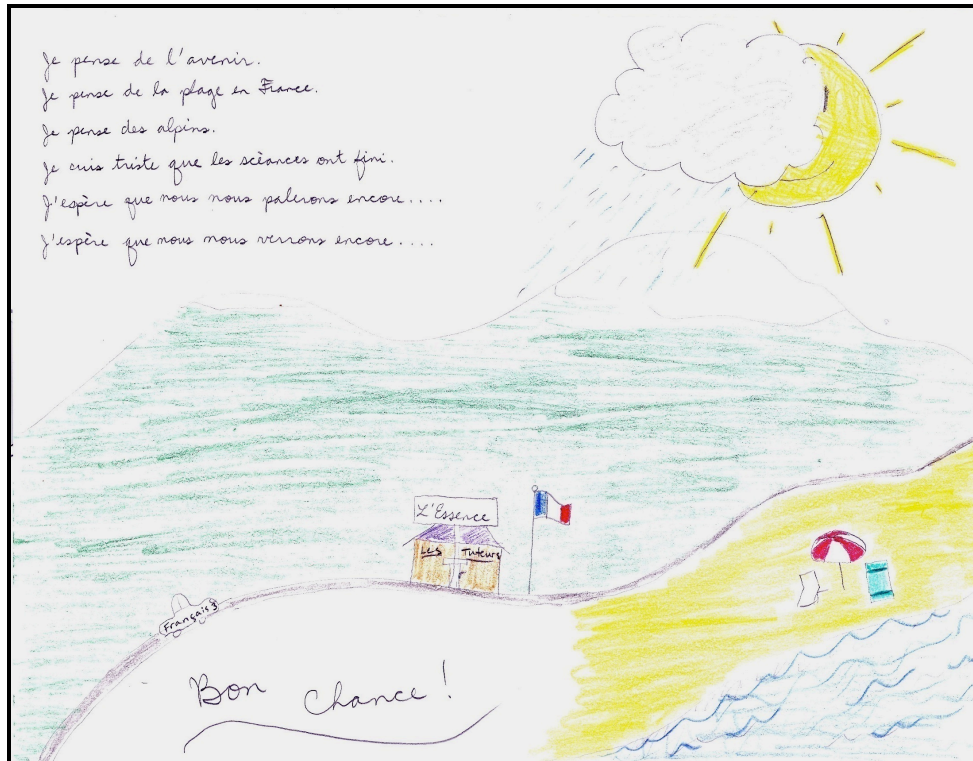 Je pense de l'avenir.
Je pense de la plage en France.
Je pense des alpins.
Je cuis triste que les scèances ont fini.
J'espère que nous nous palerons encore....
J'espère que nous nous verrons encore....
L'Essence
Les Tuteurs
Français 3
Bon chance!